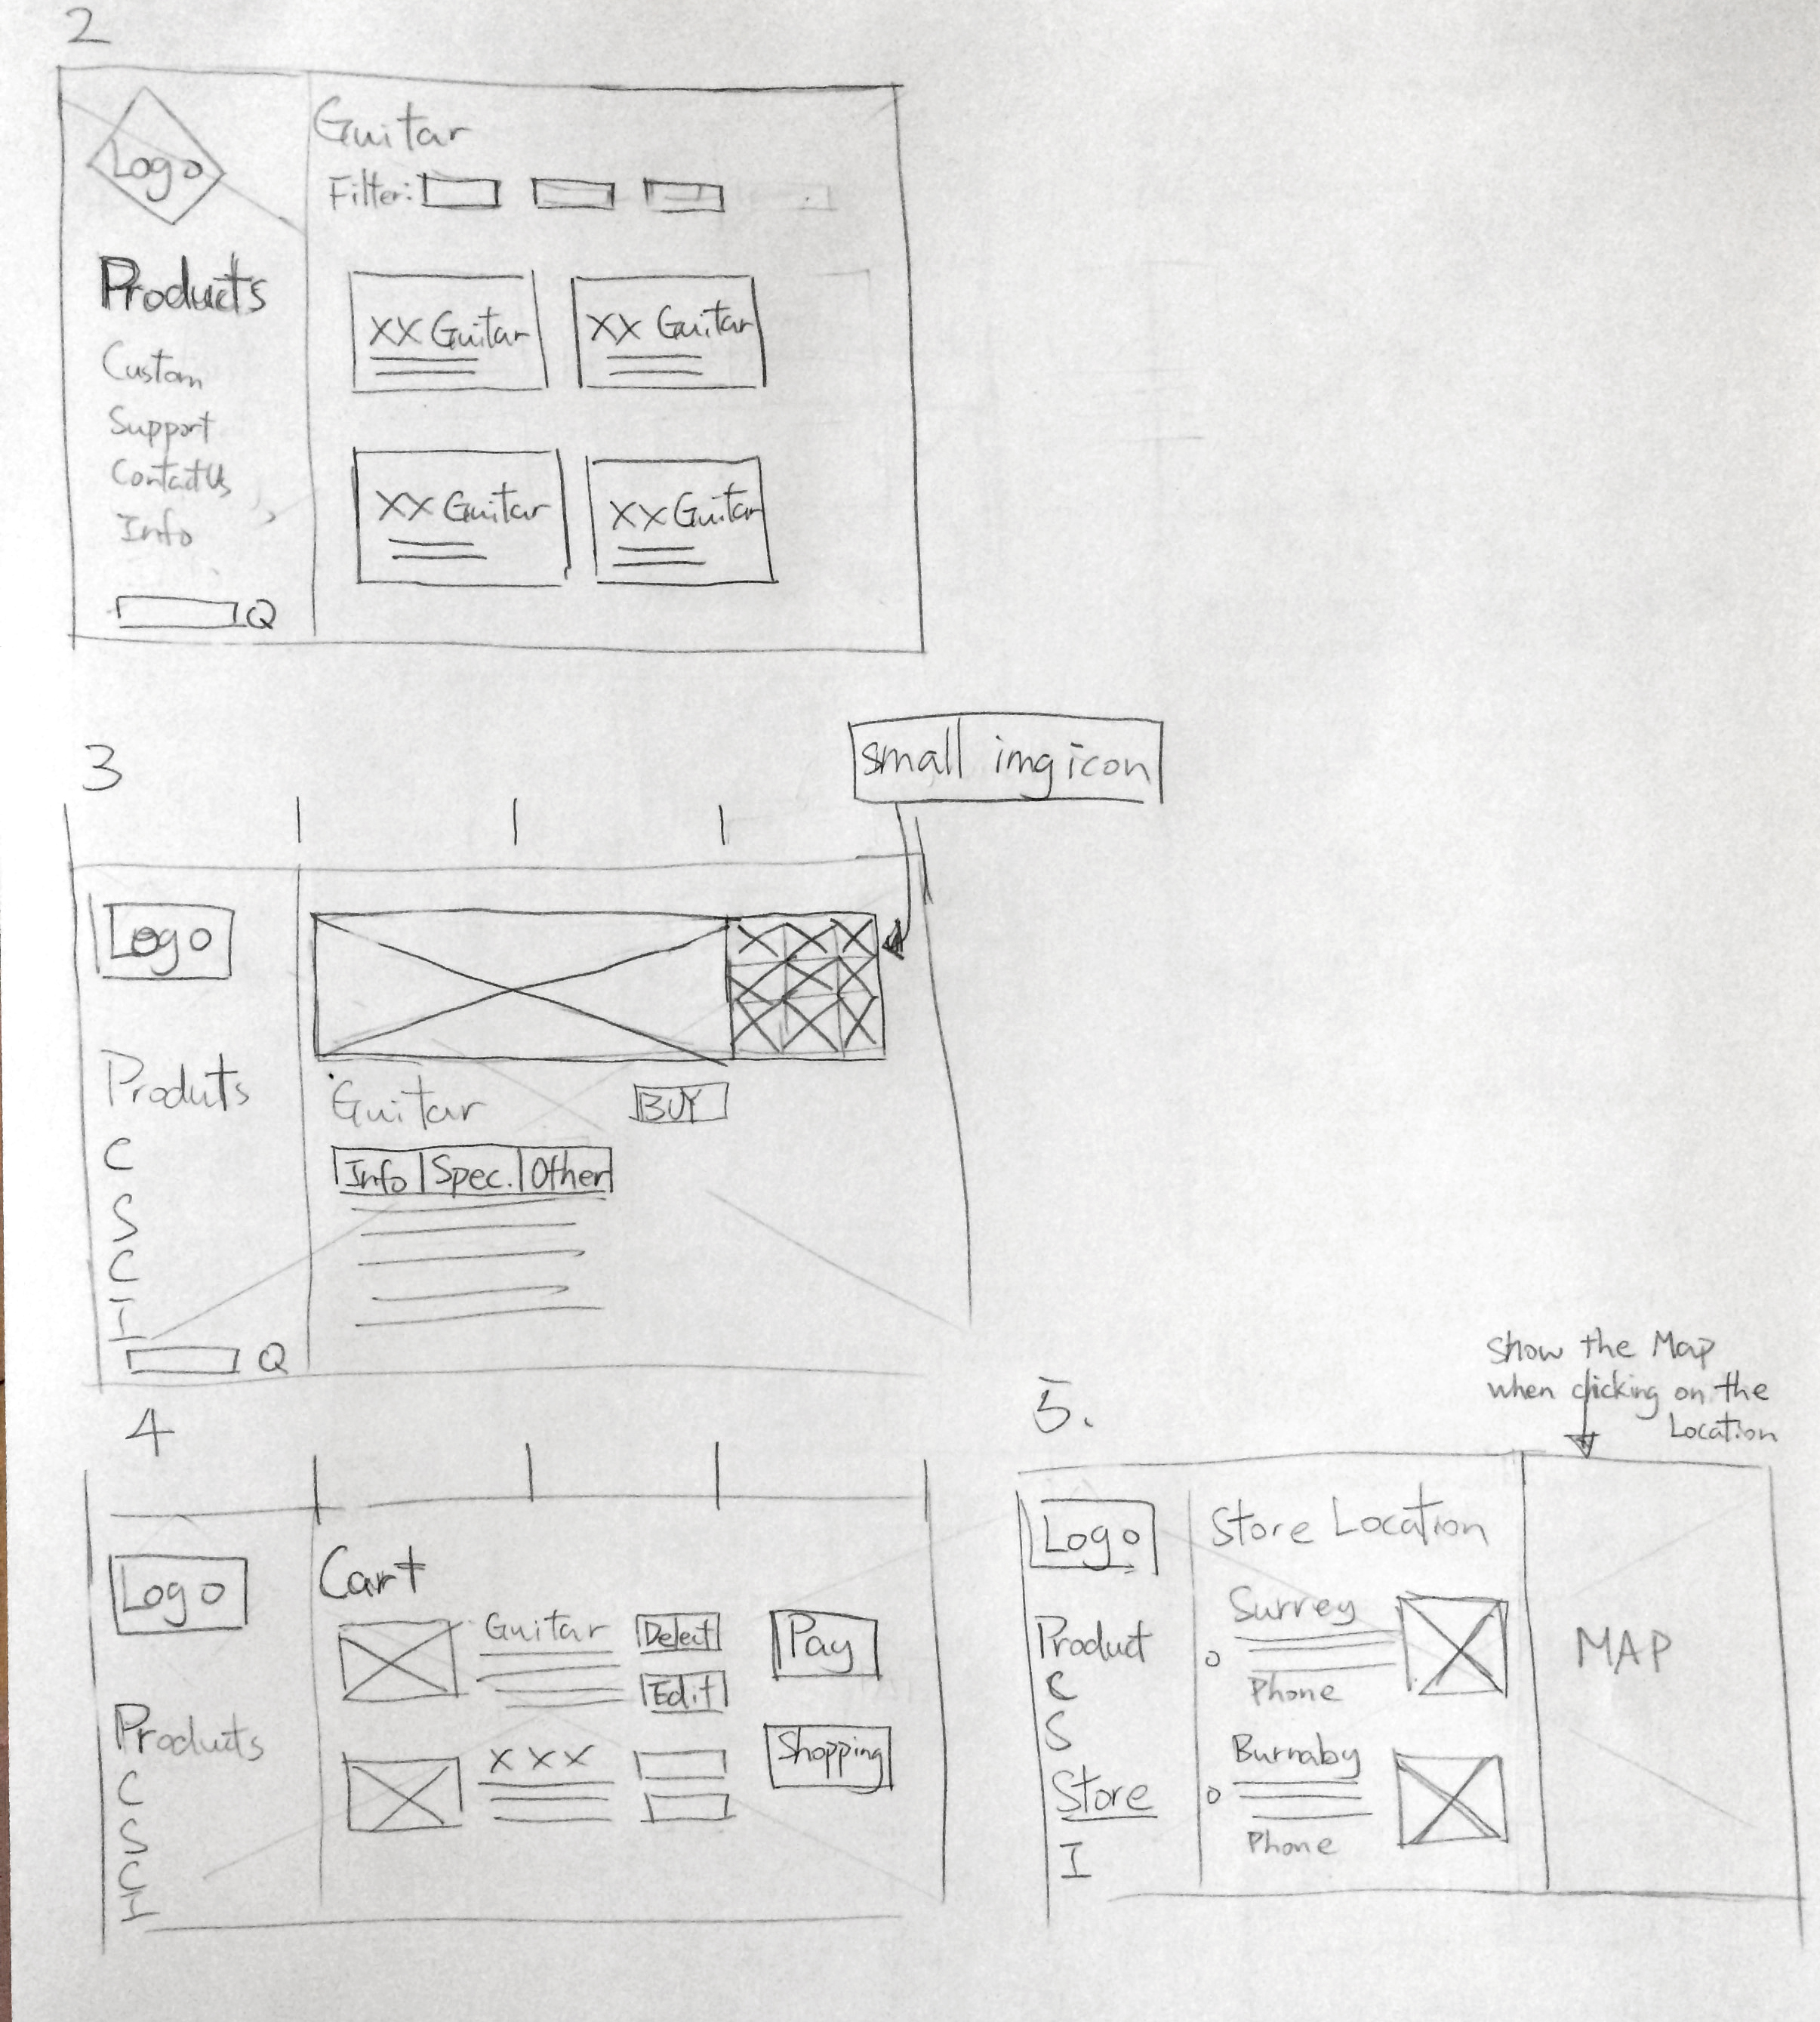 2
Logo
Guitar
Filter:
Products
Custom
Support
Contact Us
Info
Q
XX Guitar
XX Guitar
XX Guitar
XX Guitar
3
small img icon
Logo
Produts
C
S
C
I
Q
Guitar
BUY
Info
Spec.
Other
4
Logo
Products
C
S
C
I
Cart
Guitar
Delect
Edit
Pay
XXX
Shopping
5.
show the Map
when clicking on the
Location
Logo
Product
C
S
Store
I
Store Location
Surrey
Phone
Burnaby
Phone
MAP